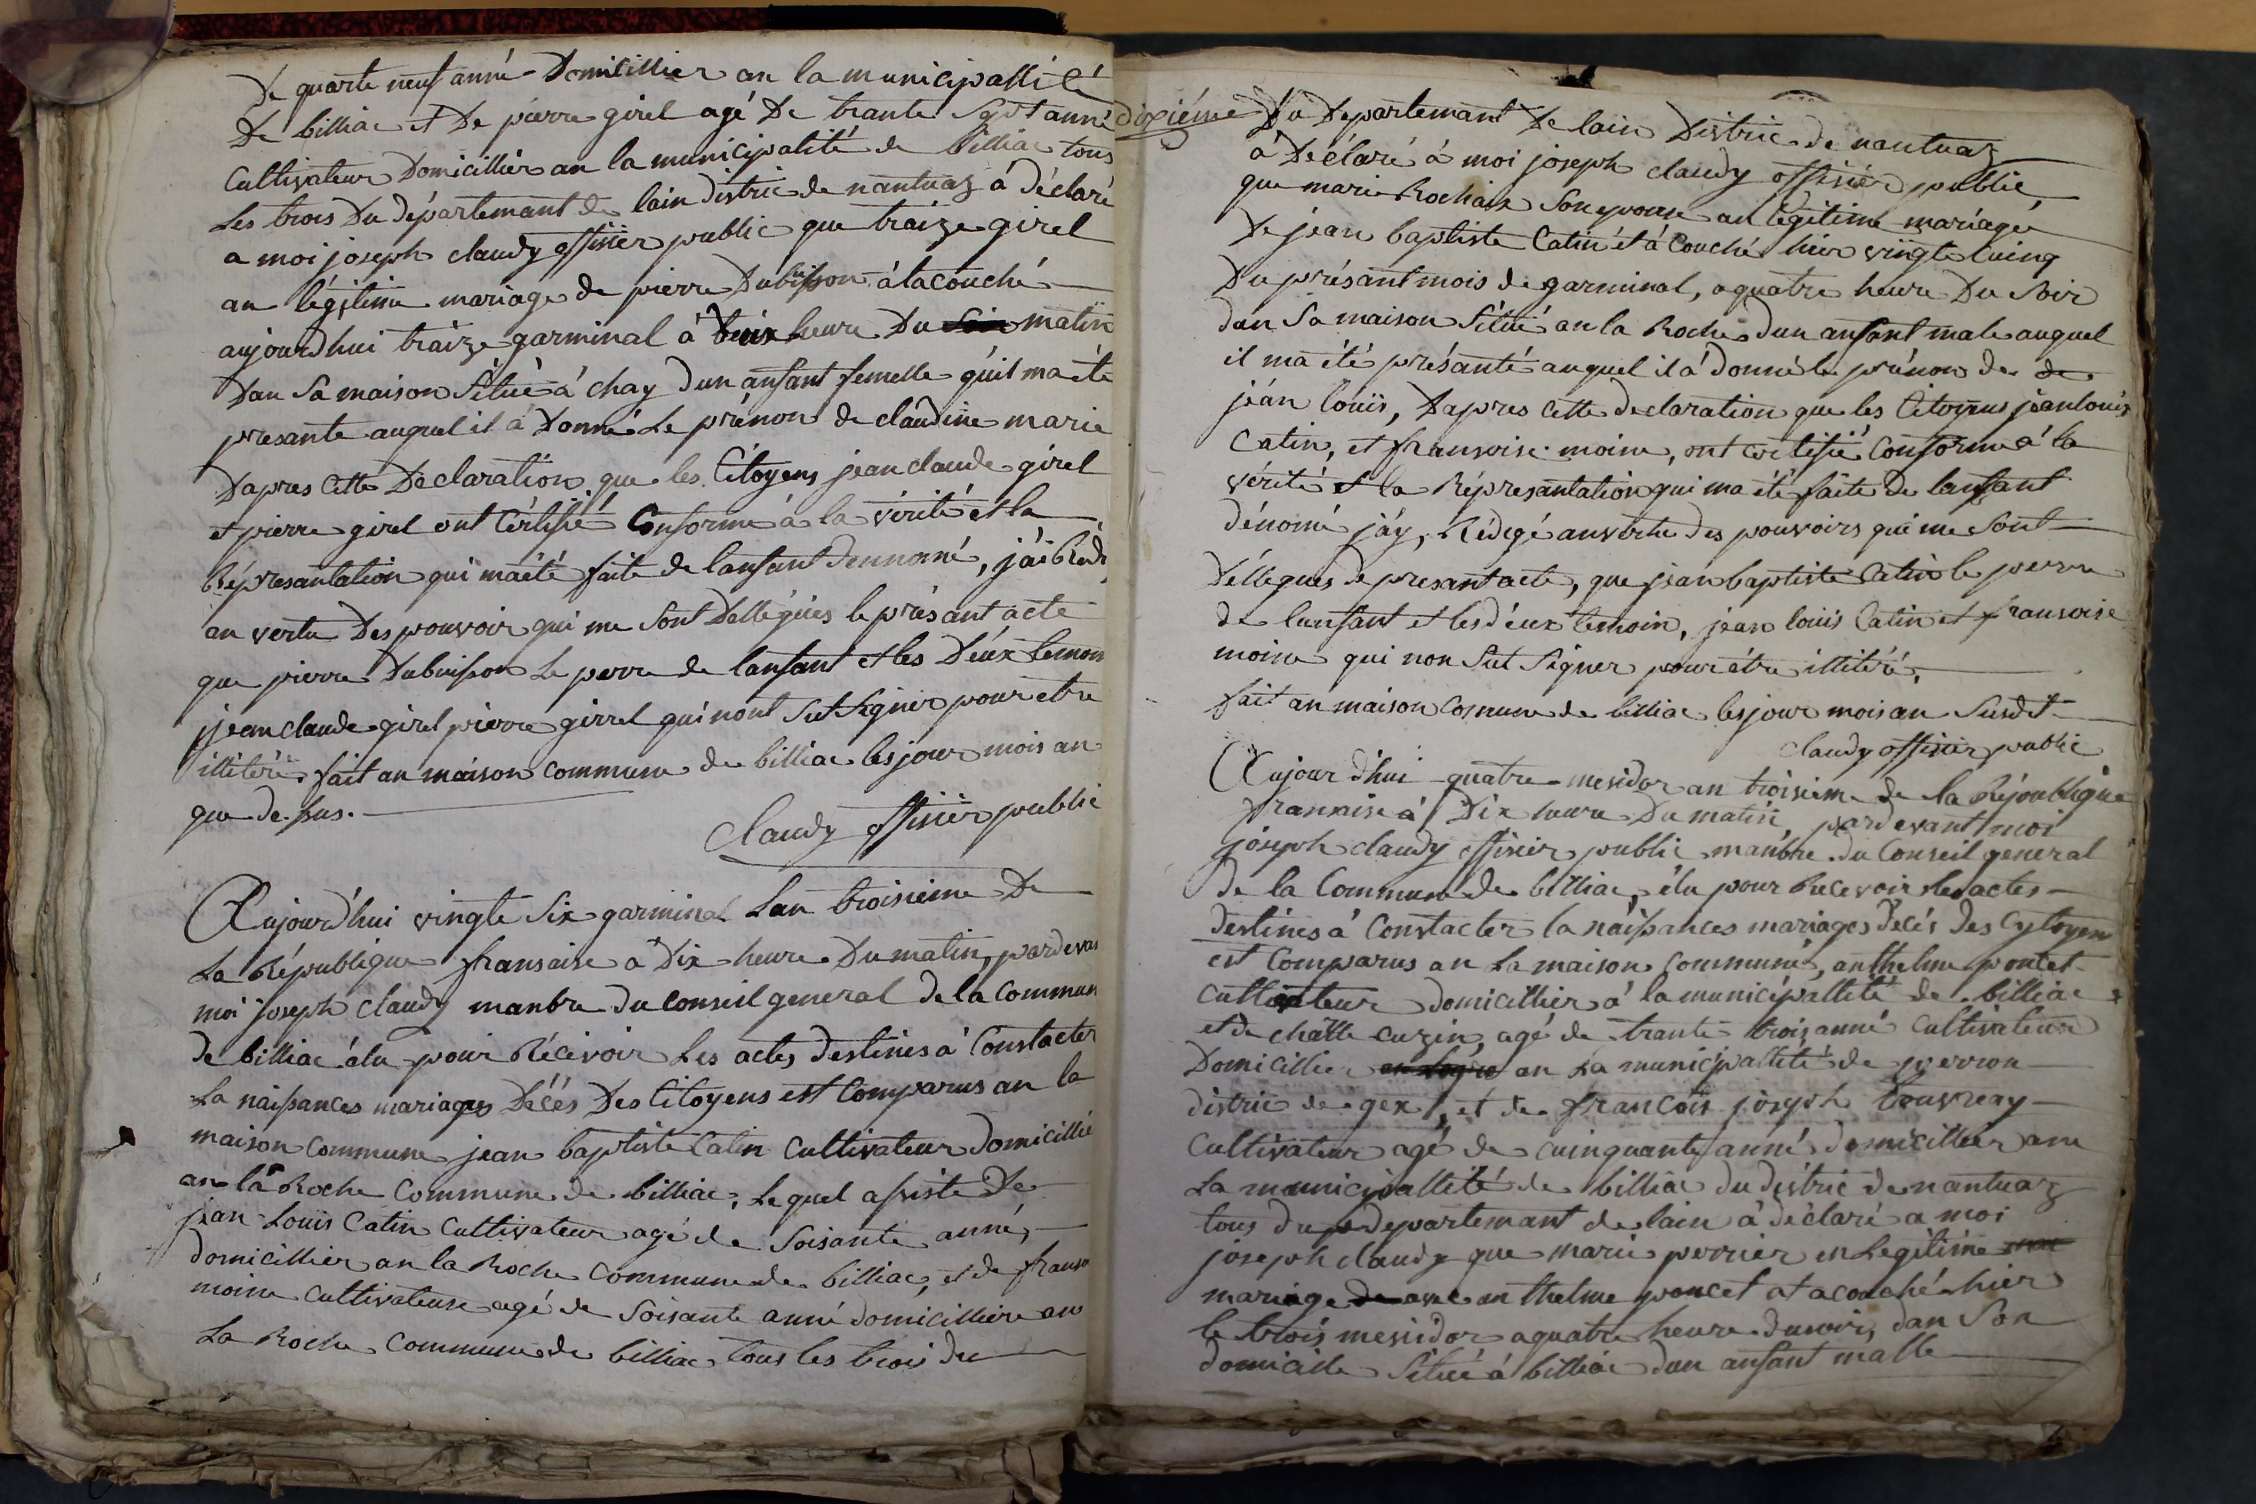 De quarte neuf anné Domicillier an la municipallité
De billiac et De pierre girel agé De trante sept anné
Cultivateur Domicillier an la municipalité de billiac tous
Les trois Du département de lain distric de nantuaz à déclaré
a moi joseph claudy offisier public que traize girel
an légitime mariage de pierre Dubuisson à lacouché
aujourdhui traize garminal à heure Du matin
Dan Sa maison Sétué à chay dun anfant femelle quil ma été
presante auquel il à Donné Le prénon de claudine marie
Dapres cette Declaration que les Citoyens jean claude girel
et pierre girel ont Cértifié Conforme à la vérité et la
Répresantation qui maété faite de lanfant Dennomé, jái Redi
an vertu Des pouvoir qui me Sont Dellégués le présant acte
que pierre Dubuisson Le perre de lanfant et les Déux temoin
jean claude girel pierre girrel qui nont Sut Signer pour etre
illitéré. fait an maison commune de billiac les jour mois an
que de sus.
Claudy offisier public
Aujourdhui vingte Six garminal Lan troisieme De
La République fransaise à Dix heure Du matin, pardevan
moi joseph claudy manbre du conseil general de la Commun
de billiac élu pour Récévoir Les actes destinés à Constacter
La naissances mariages Décés Des Citoyens est Comparus an la
maison commune jean baptiste Catin cultivateur domicillié
an la Roche Commune de billiac, Le quel assiste De
jean Louis Catin Cultivateur agé de Soisante anné,
domicillier an la Roche commune de billiac, et de franso
moine cultivateuse agé de Soisante anné domicilliere an
La Roche Commune de billiac tous les trois du
dixiéme
Du Departemant De lain Distric de nantuaz
à Déclaré à moi joseph claudy offisiér public,
que marie Rochaix Son epouse an légitime mariage
De jean baptiste Catin et à Couché hier vingte Cuinq
Du présant mois de garminal, a quatre heure Du Soir
dan Sa maison Sétué an la Roche dun anfant male auquel
il ma été présanté auquel il à donné le prénon de de
jéan louis, Dapres cette declaration que les Citoyens jean louis
Catin, et fransoise moine, ont cértifié Conforme à la
vérité et la Répresantation qui ma été faite De lanfant
dénomé jáy, Rédigé anvertu des pouvoirs qui me Sont
Déllégués le presant acte, que jean baptiste Catin le perre
de lanfant et les déux temoin, jean louis Catin et fransoise
moine qui non Sut Signer pour étre illitéré,
fait an maison comune de billiac les jour mois an Susdit
claudy offisier public
Aujour dhui quatre mesidor an troisiem de la République
franxaise à Dix heure Du matin, pardevant moi
joseph claudy offisier public manbre du Conseil general
De la Commune de billiac, élu pour Recevoir les actes
destinés à Constacter la naissances mariages décés des Cytoyen
est Comparus an La maison Communé, anthelme poncet
cultivateur domicillier à la municipallité de billiac
et de charle cuzin, agé de trante trois anné Cultivateur
Domicillier an La municipallité de perron
distric de gex, et de francois joseph
Cultivateur agé de cuinquante anné domicillier ans
La municipallité de billiac du distric de nantuaz
tous du departemant de lain à déclaré a moi
joseph claudy que marie perrier en Legitime
mariage de avec anthelme poncet at acouché hier
le trois mesidor aquatre heure dusoir, dan Son
domicille Sétué à billiac dun anfant malle